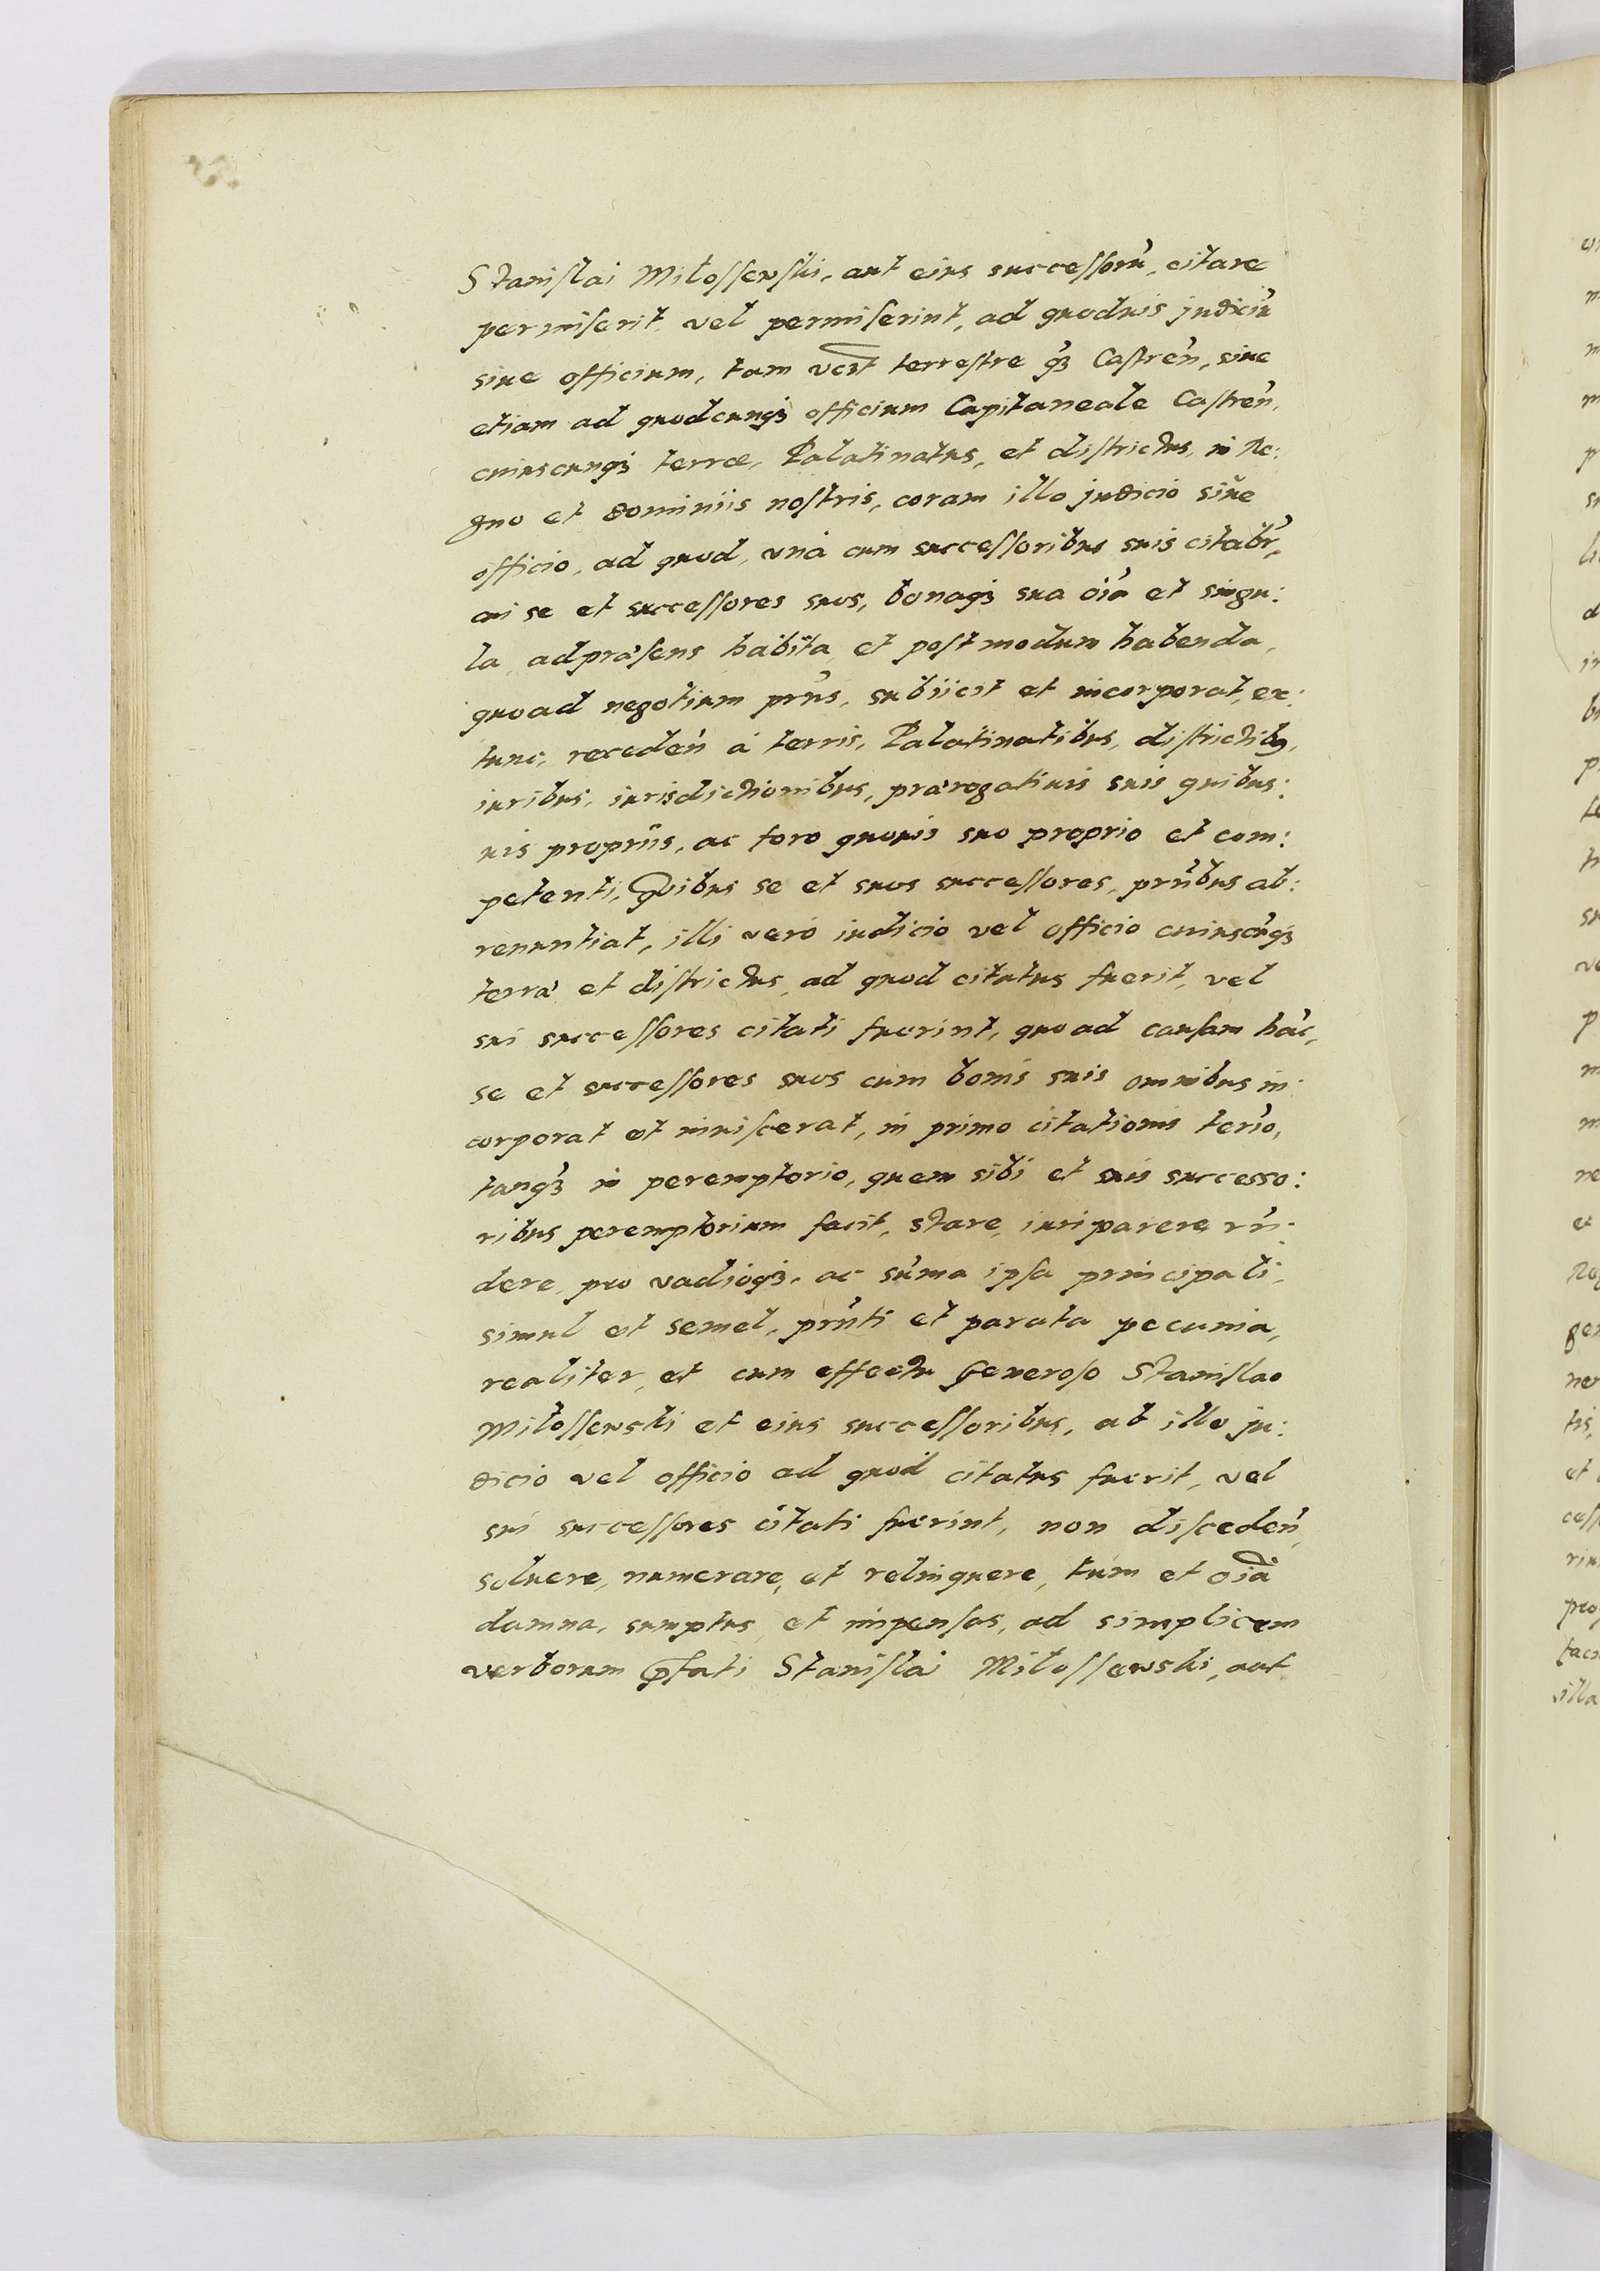 Stanislai Milossewski, aut eius successorũ, citare
permiserit vel permiserint, ad quoduis judiciũ
siue officium, tam terrestre q̃3 Castreñ, siue
etiam ad quodcunq3 officium Capitaneale Castreñ,
cuiuscunq3 terræ, Palatinatus, et districtus, in Re:
gno et dominiis nostris, coram illo judicio siue
officio, ad quod, unà cum successoribus suis citabr̃,
cui se et successores suos, bonaq3 sua oĩa et singu:
la, adpræsens habita et postmodum habenda,
quoad negotium prñs, subiicit et incorporat, ex:
tunc, recedeñ à terris, Palatinatibus, districtib9,
iuribus, iurisdictionibus, prærogatiuis suis quibus:
uis propriis, ac foro quouis suo proprio et com:
petenti, Quibus se et suos successores, prñtibus ab:
renuntiat, illi verò iudicio vel officio cuiuscũq3
terræ et districtus, ad quod citatus fuerit, vel
sui successores citati fuerint, quoad causam hãc,
se et successores suos cum bonis suis omnibus in:
corporat et inuiscerat, in primo citationis terĩo,
tanq̃3 in peremptorio, quem sibi et suis successo:
ribus peremptorium facit, stare, iuri parere rñ:
dere, pro vadioq3, ac sũma ipsa principali,
simul et semel, prñti et parata pecunia,
realiter, et cum effectu Generoso Stanislao
Milossewski et eius successoribus, ab illo ju:
dicio vel officio ad quod citatus fuerit, vel
sui successores citati fuerint, non discedeñ,
soluere, numerare, et relinquere, tùm et oĩa
damna, sumptus, et impensas, ad simplicem
verborum ꝓfati Stanislai Milossewski, aut